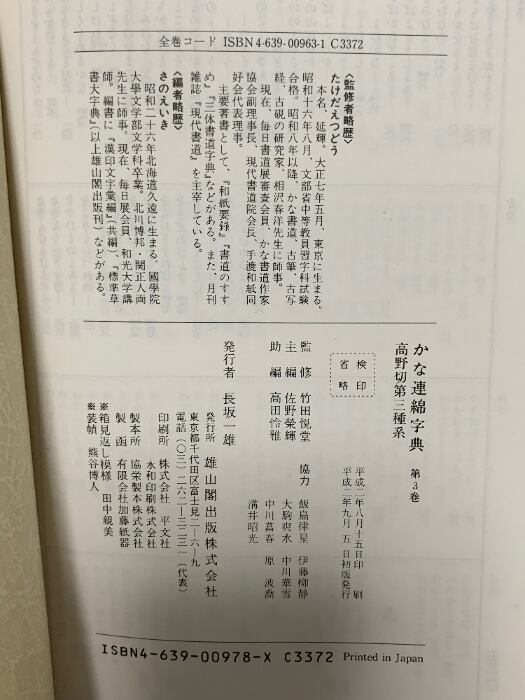 全巻コード ISBN 4-639-00963-1 C3372
〈監修者略歴〉
たけだえつどう
本名、延輝。大正七年五月、東京に生まる。
昭和十六年八月、文部省中等教員習字科試験
合格。昭和八年以降、かな書道、古筆、古写
経、古硯の研究家、相沢春洋先生に師事。
現在、毎日書道展審査会員、かな書道作家
協会副理事長、現代書道院会長、手渡和紙同
好会代表理事。
主要著書として、『和紙要録』『書道のすす
め』『三体書道字典』などがある。また、月刊
雑誌『現代書道』を主宰している。
〈編者略歴〉
さのえいき
昭和二十六年北海道久遠に生まる。國學院
大學文学部文学科卒業。北川博邦・関正人両
先生に師事。現在、毎日展会員、和光大学講
師。編書に『漢印文字彙編』(共編)、『標準草
書大字典』(以上雄山閣出版刊)などがある。
かな連綿字典 第3巻
高野切第三種系
検印
省略
平成二年八月十五日印刷
平成二年九月五日初版発行
監修 竹田悦堂
主編 佐野榮輝
助編 高田怜雅
協力 飯島律星 伊藤柳静
大駒爽水 中川華雪
中川菖春 原波喬
溝井昭光
発行者 長坂一雄
発行所 雄山閣出版株式会社
東京都千代田区富士見二-六-九
電話(〇三)二六二-三二三一(代表)
印刷所 株式会社 平文社
永和印刷株式会社
製本所 協栄製本株式会社
製函 有限会社加藤紙器
※箱見返し模様 田中親美
※装幀 熊谷博人
ISBN4-639-00978-X C3372 Printed in Japan